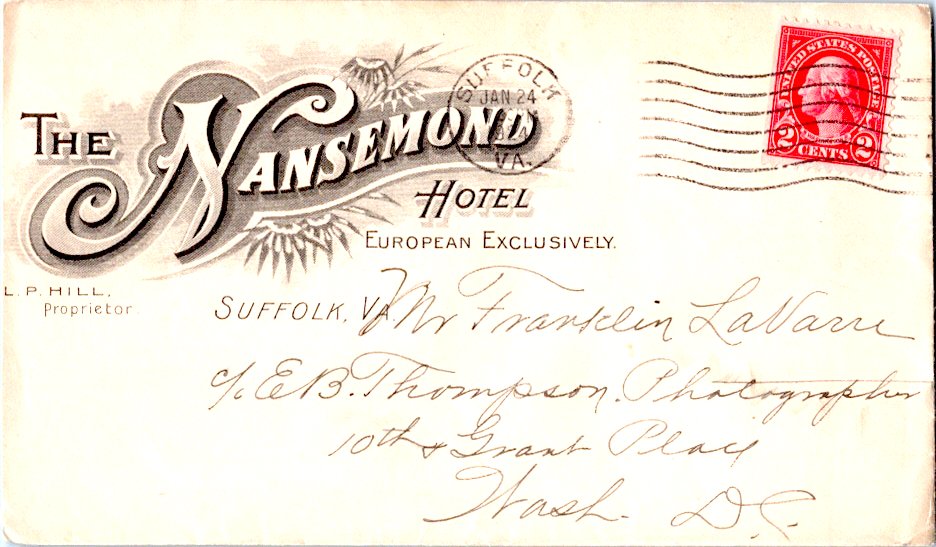 THE NANSEMOND
HOTEL
EUROPEAN EXCLUSIVELY.
L. P. HILL,
Proprietor.
SUFFOLK, VA.
SUFFOLK
JAN 24
VA.
UNITED STATES POSTAGE
2 CENTS 2
Mr Franklin LaVarre
c/o E B. Thompson. Photographer
10th & Grant Place
Wash. D.C.